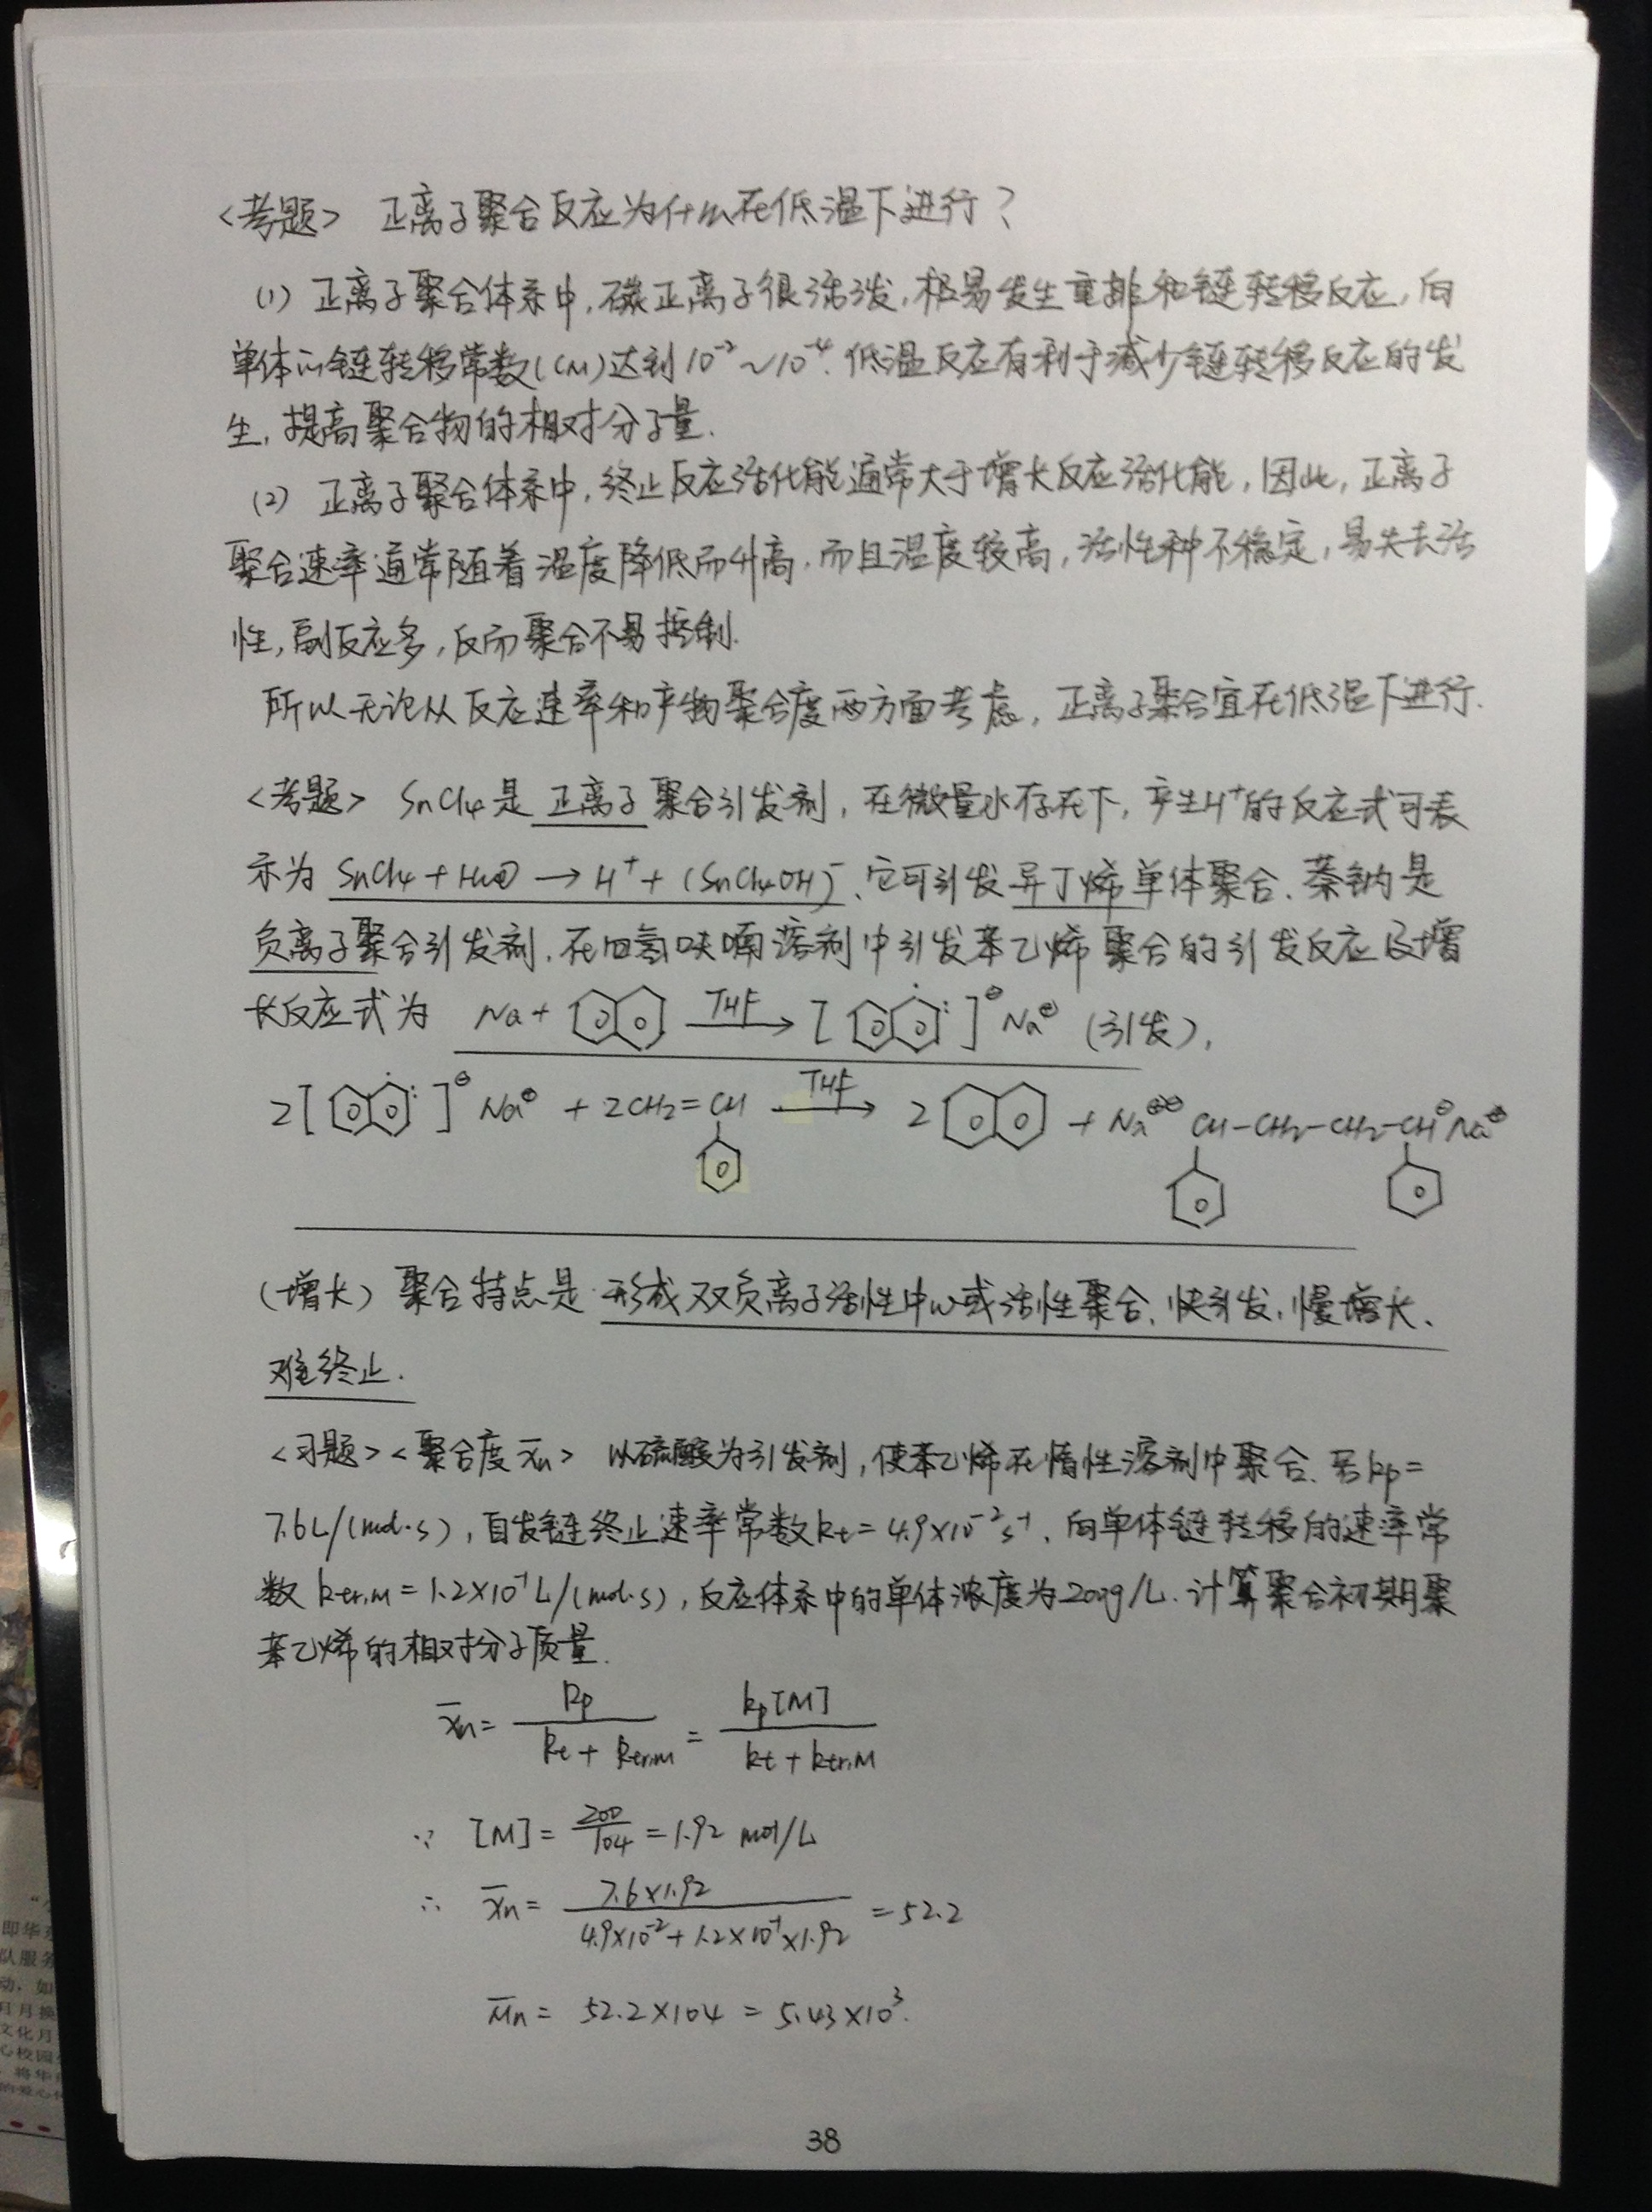 <考题> 正离子聚合反应为什么在低温下进行?
(1) 正离子聚合体系中,碳正离子很活泼,极易发生重排和链转移反应,向
单体的链转移常数(CM)达到10⁻²~10⁻⁴.低温反应有利于减少链转移反应的发
生,提高聚合物的相对分子量.
(2) 正离子聚合体系中,终止反应活化能通常大于增长反应活化能,因此,正离子
聚合速率通常随着温度降低而升高.而且温度较高,活性种不稳定,易失去活
性,副反应多,反而聚合不易控制.
所以无论从反应速率和产物聚合度两方面考虑,正离子聚合宜在低温下进行.
<考题> SnCl₄是正离子聚合引发剂,在微量水存在下,产生H⁺的反应式可表
示为 SnCl₄+H₂O → H⁺+(SnCl₄OH)⁻,它可引发异丁烯单体聚合.萘钠是
负离子聚合引发剂.在四氢呋喃溶剂中引发苯乙烯聚合的引发反应及增
长反应式为 Na+ THF → [ ]⊖ Na⊕ (引发),
2[ ]⊖ Na⊕ + 2CH₂=CH THF → 2 + Na⊕⊖CH-CH₂-CH₂-CH⊖Na⊕
(增长) 聚合特点是 形成双负离子活性中心或活性聚合、快引发,慢增长、
难终止.
<习题><聚合度x̄n> 以硫酸为引发剂,使苯乙烯在惰性溶剂中聚合.若kp=
7.6L/(mol·s),自发链终止速率常数kt=4.9×10⁻²s⁻¹,向单体链转移的速率常
数 ktr,M=1.2×10⁻¹L/(mol·s),反应体系中的单体浓度为200g/L.计算聚合初期聚
苯乙烯的相对分子质量.
x̄n= Rp / (Rt + Rtr,M) = kp[M] / (kt + ktr,M)
∵ [M]= 200/104 =1.92 mol/L
∴ x̄n= 7.6×1.92 / (4.9×10⁻²+1.2×10⁻¹×1.92) =52.2
M̄n= 52.2×104 = 5.43×10³.
38